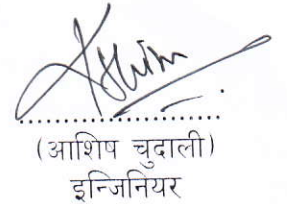 (आशिष चुदाली)
इन्जिनियर